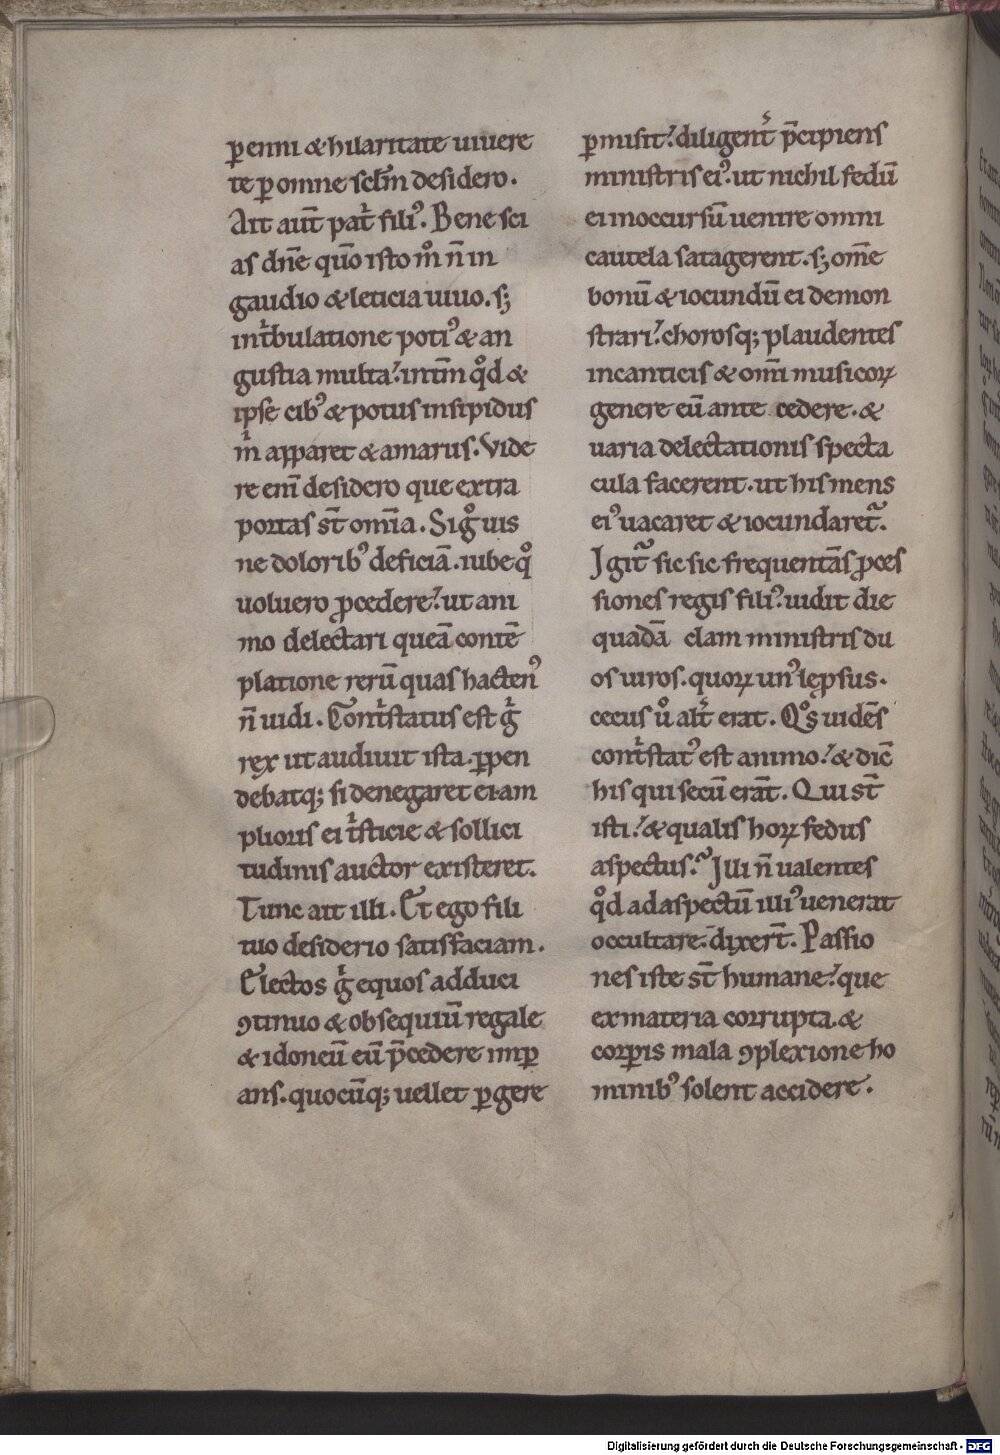 ꝑenni & hilaritate uiuere
te ꝑ omne sclm̄ desidero.
Ait aut̄ pat̉ filiꝰ. Bene sci
as dn̄e quō isto m̊ n̄ in
gaudio & leticia uiuo. sꝫ
int̉bulatione potiꝰ & an
gustia multa. intm̄ qd̊ &
ipse cibꝰ & potus insipidus
m̉ apparet & amarus. Vide
re eni̅ desidero que extra
portas st̄ om̄ia. Sig̊ uis
ne doloribꝰ deficiā. iube q̊
uoluero ꝓcedere. ut ani
mo delectari queā contē
platione rerū quas hactenꝰ
n̄ uidi. Cont̉status est g̉
rex ut audiuit ista. ꝑpen
debatqꝫ si denegaret ei am
plioris ei t̉sticie & sollici
tudinis auctor existeret.
Tunc ait illi. Et ego fili
tuo desiderio satisfaciam.
Electos g̉ equos adduci
ꝯtinuo & obsequiū regale
& idoneū eū p̄cedere imꝑ
ans. quocūqꝫ uellet ꝑgere
ꝑmisit. diligent̉ p̄cipiens
ministris eiꝰ. ut nichil fedū
ei in occursū uenire omni
cautela satagerent. sꝫ om̄e
bonū & iocundū ei demon
strari. chorosqꝫ plaudentes
in canticis & om̄i musicoꝝ
genere eū ante cedere. &
uaria delectationis specta
cula facerent. ut his mens
eiꝰ uacaret & iocundaret᷑.
Igit᷑ sic sic frequentās ꝓces
siones regis filiꝰ. uidit die
quadā clam ministris du
os uiros. quoꝝ unꝰ leꝓsus.
cecus ů alt̉ erat. Qͦs uidēs
cont̉statꝰ est animo. & dic̄
his qui secū erāt. Qui st̄
isti. & qualis hoꝝ fedus
aspectus. Illi n̄ ualentes
qd̊ ad aspectū illiꝰ uenerat
occultare. dixert̄. Passio
nes iste st̄ humane. que
ex materia corrupta. &
corꝑis mala ꝯplexione ho
minibꝰ solent accidere.
Digitalisierung gefördert durch die Deutsche Forschungsgemeinschaft - DFG